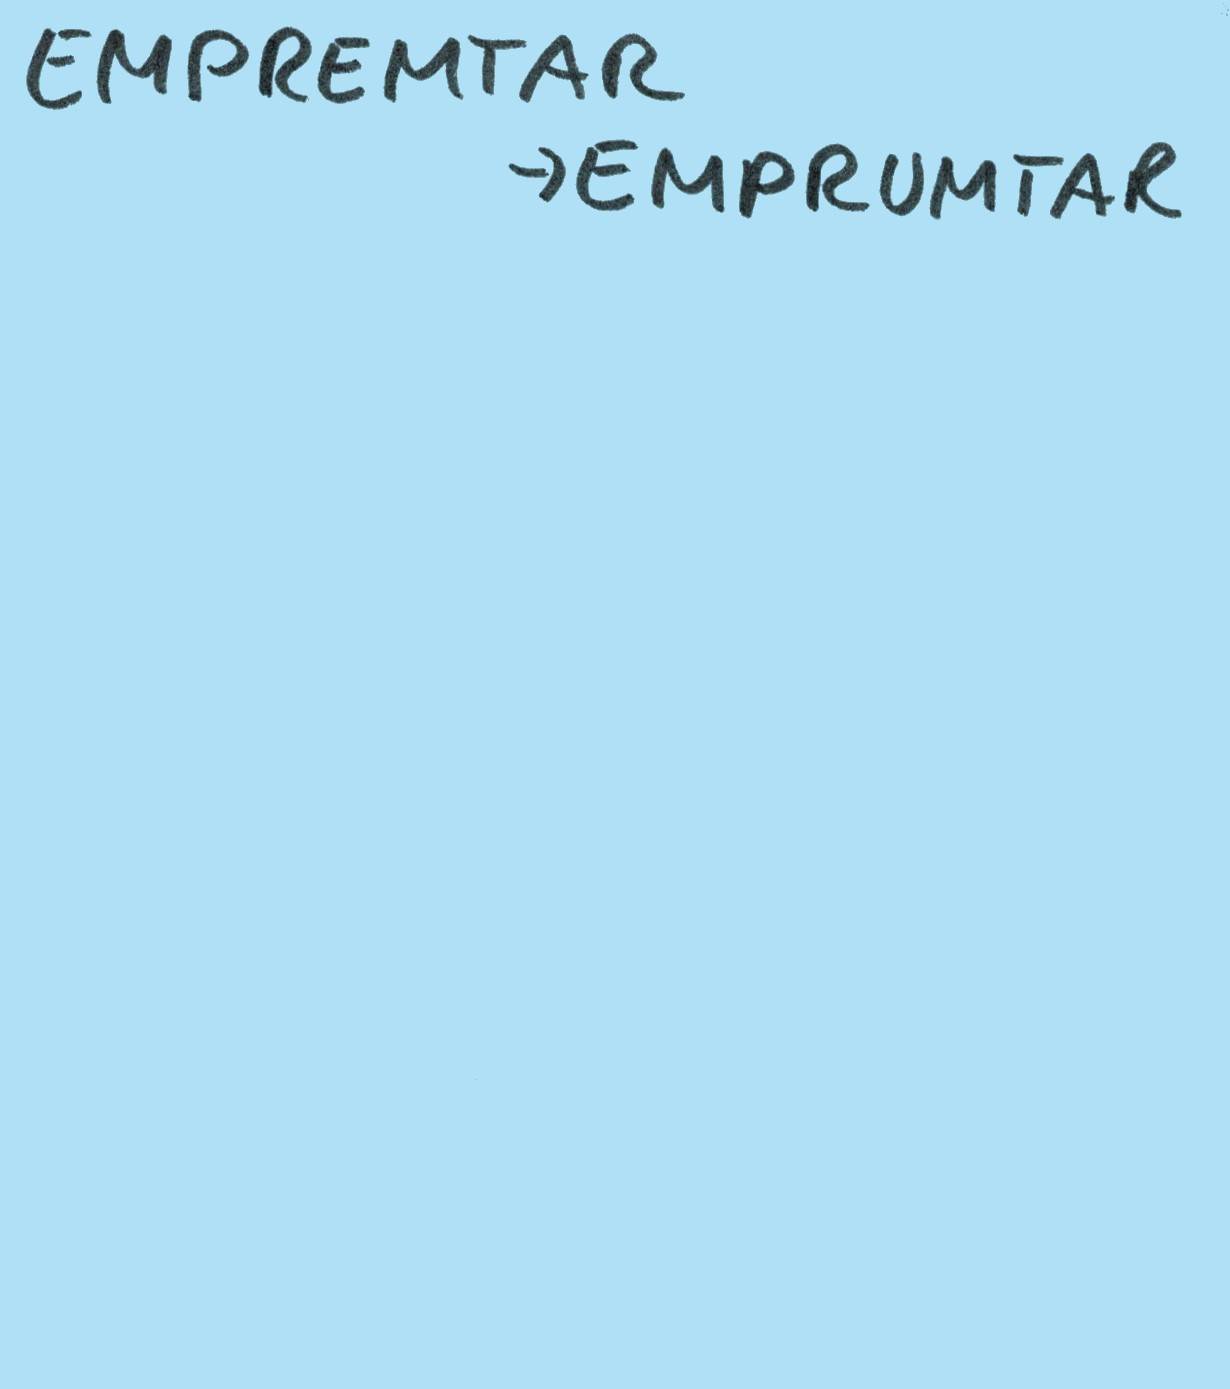 EMPREMTAR
→EMPRUMTAR